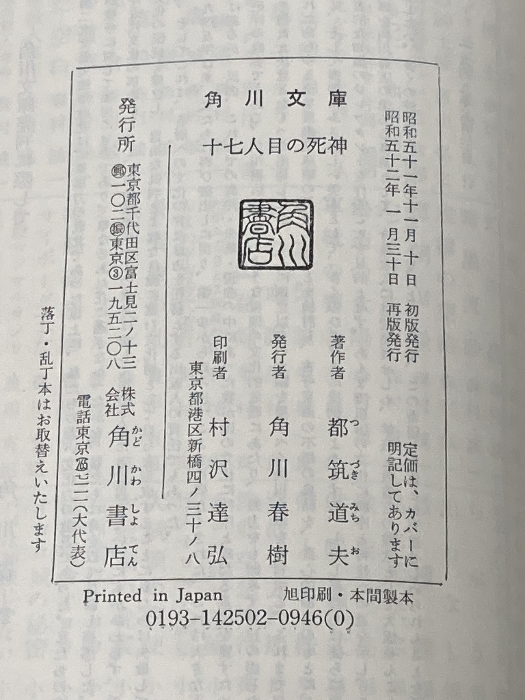 角川文庫
十七人目の死神
昭和五十一年十一月十日 初版発行
昭和五十二年一月三十日 再版発行
定価は、カバーに
明記してあります
著作者 都筑道夫
つづきみちお
発行者 角川春樹
印刷者 村沢達弘
東京都港区新橋四ノ三十ノ八
角川書店
発行所
東京都千代田区富士見二ノ十三
一〇二 東京③一九五二〇八
株式
会社
角川書店
かどかわしょてん
(大代表)
落丁・乱丁本はお取替えいたします
Printed in Japan 旭印刷・本間製本
0193-142502-0946(0)